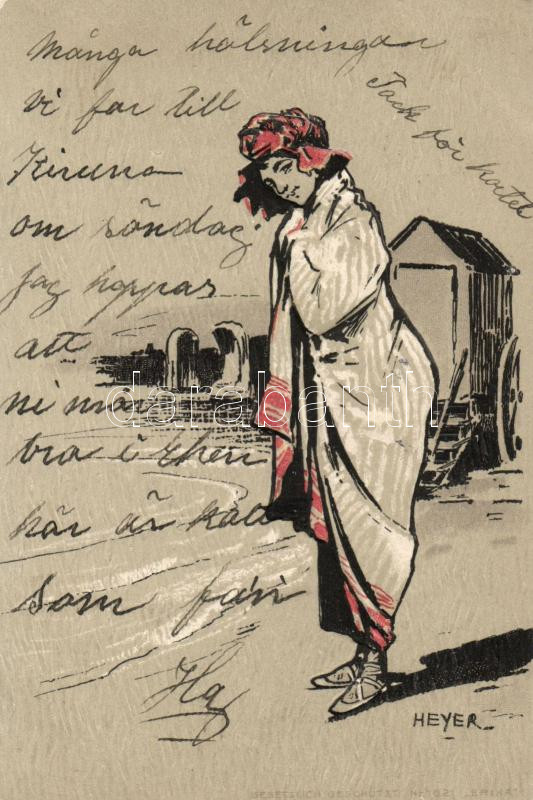 Många hälsningar
vi far till
Kiruna
om söndag
Jag hoppas
att
ni mår
bra i
här är kallt
som
Tack för kortet
darabanth
HEYER
GESETZLICH GESCHÜTZT